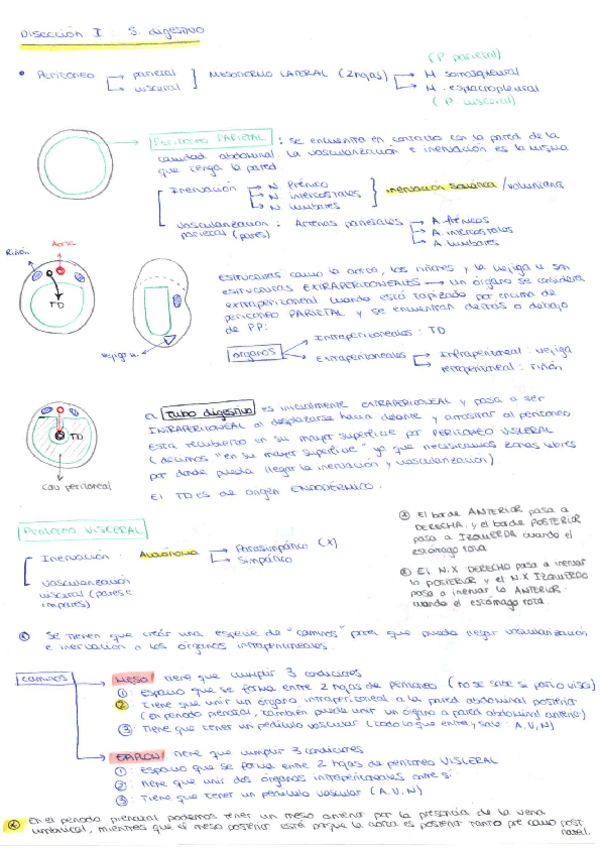 Disección I : S. digestivo
(P parietal)
• Peritoneo → parietal → visceral ] Mesodermo lateral (2 hojas) → H somatopleural → H. esplacnopleural
(P. visceral)
Peritoneo PARIETAL : se encuentra en contacto con la pared de la
cavidad abdominal. La vascularización e inervación es la misma
que tenga la pared.
Inervación → N. Frénico → N. intercostales → N. lumbares } inervación somática / voluntaria
Vascularización : Arterias parietales → A. frénicas
parietal (pares) → A. intercostales
→ A. lumbares
Aorta
Riñón
TD
Vejiga u.
Estructuras como la aorta, los riñones y la vejiga u son
estructuras EXTRAPERITONEALES → un órgano se considera
extraperitoneal cuando está tapizado por encima de
peritoneo PARIETAL y se encuentran detrás o debajo
de PP:
órganos → Intraperitoneales : TD
→ Extraperitoneales → Infraperitoneal : vejiga
→ retroperitoneal : riñón
TD
Cav peritoneal
El Tubo digestivo es inicialmente EXTRAPERITONEAL y pasa a ser
INTRAPERITONEAL al desplazarse hacia delante y arrastrar al peritoneo
Está recubierto en su mayor superficie por PERITONEO VISCERAL
(decimos "en su mayor superficie" ya que necesitamos zonas libres
por donde pueda llegar la inervación y vascularización)
El TD es de origen ENDODÉRMICO.
Peritoneo VISCERAL
Inervación : Autónoma → Parasimpático (X)
→ Simpático
Vascularización
visceral (pares e
impares)
El borde ANTERIOR pasa a
DERECHA y el borde POSTERIOR
pasa a IZQUIERDA cuando el
estómago rota.
El N.X DERECHO pasa a inervar
la POSTERIOR y el N.X IZQUIERDO
pasa a inervar la ANTERIOR.
cuando el estómago rota.
Se tienen que crear una especie de "caminos" para que pueda llegar vascularización
e inervación a los órganos intraperitoneales.
caminos → MESO : tiene que cumplir 3 condiciones
① : Espacio que se forma entre 2 hojas de peritoneo (no se sabe si pariet o visc)
② : Tiene que unir un órgano intraperitoneal a la pared abdominal posterior
(en periodo prenatal, también puede unir un órgano a pared abdominal anterior)
③ : Tiene que tener un pedículo vascular (todo lo que entra y sale : A, V, N)
→ EPIPLON : tiene que cumplir 3 condiciones
① : Espacio que se forma entre 2 hojas de peritoneo VISCERAL
② : tiene que unir dos órganos intraperitoneales entre sí
③ : Tiene que tener un pedículo vascular (A, V, N)
En el periodo prenatal podemos tener un meso anterior por la presencia de la vena
umbilical, mientras que el meso posterior está porque la aorta es posterior tanto pre como post
natal.